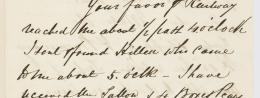 Your favor of Railway
reached me about ½ past 4 o'clock
I sent & found Hillen who came
to me about 5. o'clk - I have
received the Tallow & 40 Boxes